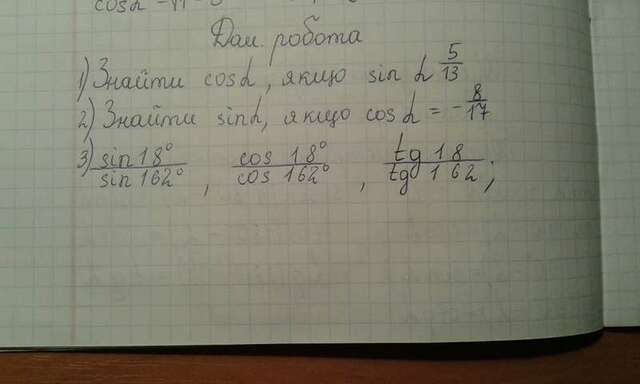 Дом. робота
1) Знайти cos α, якщо sin α 5/13
2) Знайти sin α, якщо cos α = -8/17
3) sin 18°/sin 162°, cos 18°/cos 162°, tg 18/tg 162;